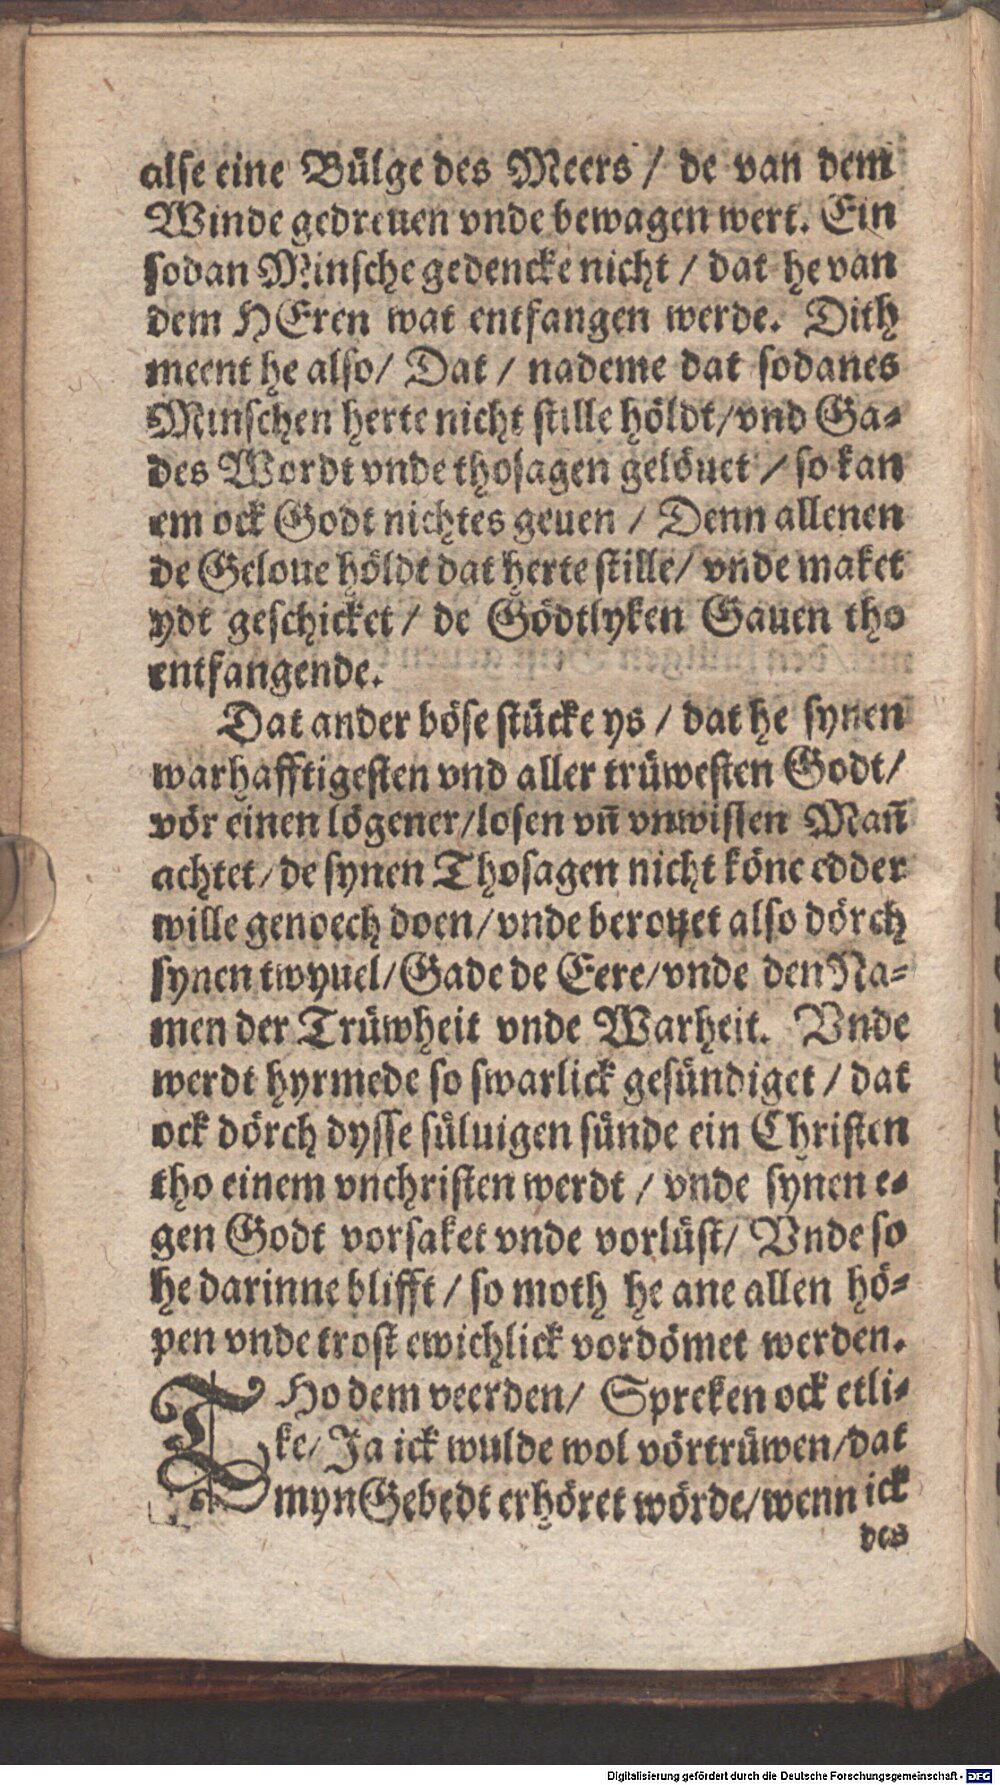 alse eine Bülge des Meers / de van dem
Winde gedreuen vnde bewagen wert. Ein
sodan Minsche gedencke nicht / dat he van
dem HEren wat entfangen werde. Dith
meent he also/ Dat / nademe dat sodanes
Minschen herte nicht stille höldt/vnd Ga-
des Wordt vnde thosagen gelöuet / so kan
em ock Godt nichtes geuen / Denn allenen
de Geloue höldt dat herte stille/ vnde maket
ydt geschicket / de Gödtlyken Gauen tho
entfangende.
Dat ander böse stücke ys / dat he synen
warhafftigesten vnd aller trüwesten Godt/
vör einen lögener/losen vn̄ vnwissen Man̄
achtet/de synen Thosagen nicht köne edder
wille genoech doen/vnde berouet also dörch
synen twyuel/Gade de Eere/vnde den Na-
men der Trüwheit vnde Warheit. Vnde
werdt hyrmede so swarlick gesündiget / dat
ock dörch dysse süluigen sünde ein Christen
tho einem vnchristen werdt / vnde synen e-
gen Godt vorsaket vnde vorlüst/ Vnde so
he darinne blifft / so moth he ane allen hö-
pen vnde trost ewichlick vordömet werden.
THo dem veerden/ Spreken ock etli-
ke/ Ja ick wulde wol vörtrüwen/dat
myn Gebedt erhöret wörde/wenn ick
des
Digitalisierung gefördert durch die Deutsche Forschungsgemeinschaft - DFG